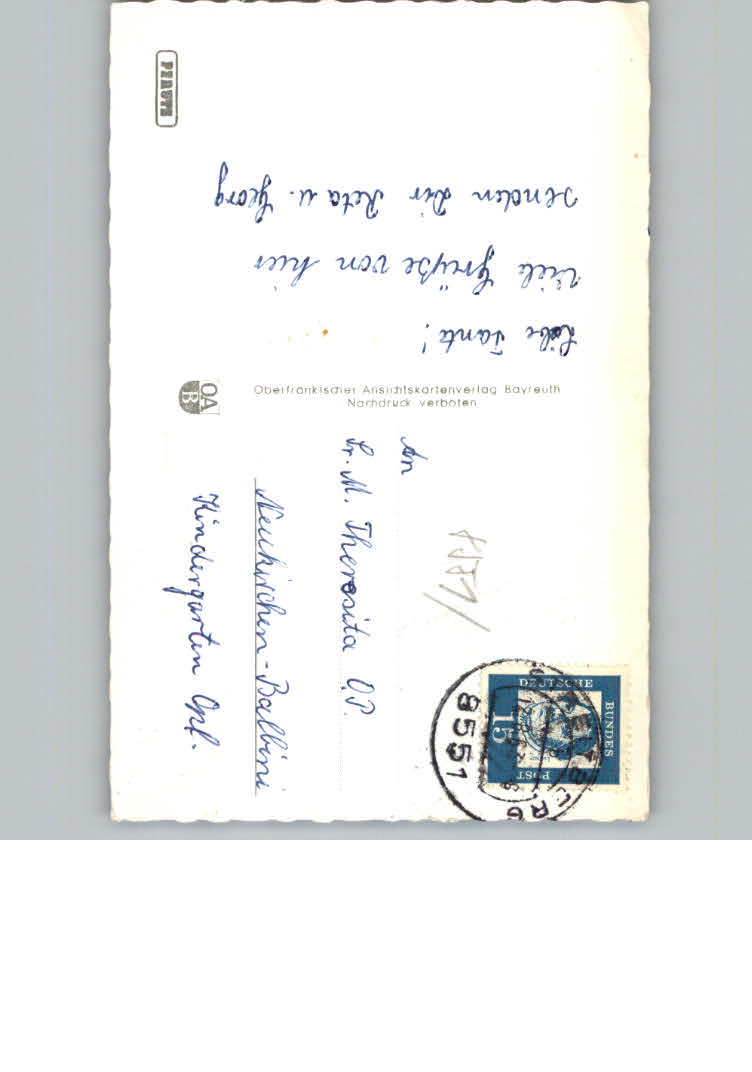 Liebe Tante!
Viele Grüße von hier
senden Dir Reta u. Georg
PERUTZ
Oberfränkischer Ansichtskartenverlag Bayreuth
Nachdruck verboten
OA
B
An
Sr. M. Theresita O.P.
Neukirchen-Balbini
Kindergarten Opf.
DEUTSCHE
BUNDES
POST
15
8551